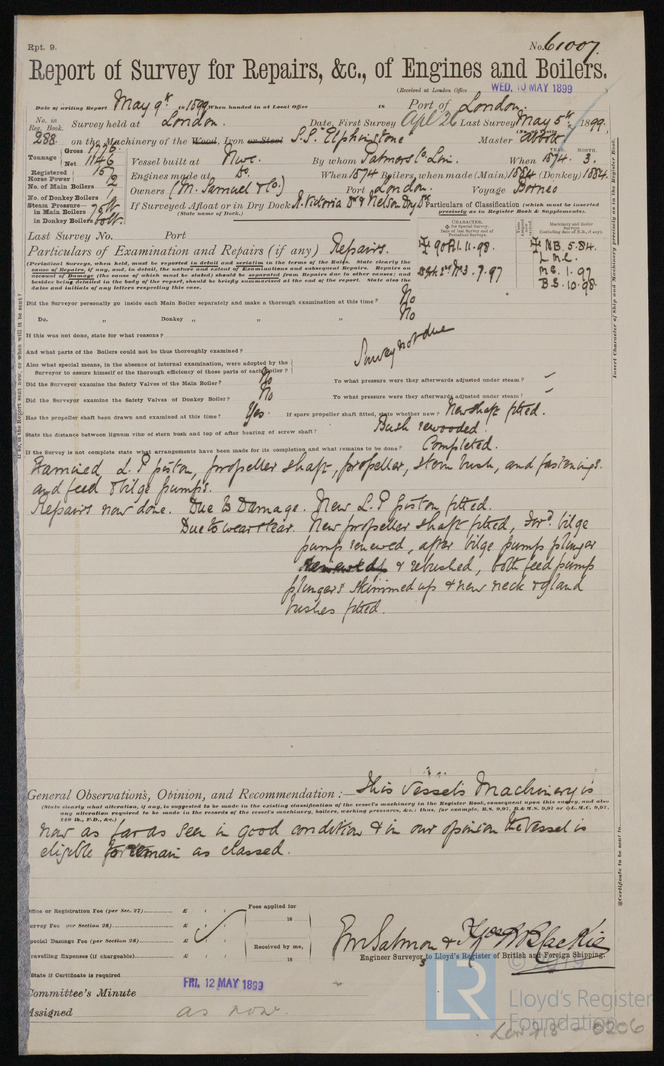 Rpt. 9.
No. 61007.
Report of Survey for Repairs, &c., of Engines and Boilers.
(Received at London Office WED. 10 MAY 1899
Date of writing Report May 9th 1899 When handed in at Local Office 18 Port of London.
No. in Reg. Book. Survey held at London. Date, First Survey April 26 Last Survey May 5th 1899.
288 on the Machinery of the Wood, Iron or Steel S.S. Elphinstone Master Abbott
Tonnage Gross 1778 Net 1146 Vessel built at Nwc. By whom Palmers Co Lim. When 1874. 3.
Registered Horse Power 157 Engines made at Do. When 1874 Boilers, when made (Main) 1884 (Donkey) 1884
No. of Main Boilers 2 Owners (M. Samuel & Co.) Port London. Voyage Borneo
No. of Donkey Boilers 1
Steam Pressure in Main Boilers 75 lb If Surveyed Afloat or in Dry Dock R. Victoria Dk & Nelson Dry Dk Particulars of Classification (which must be inserted
in Donkey Boilers 60 lb. (State name of Dock.) precisely as in Register Book & Supplements).
Last Survey No. Port
Particulars of Examination and Repairs (if any) Repairs.
CHARACTER.
90 A1. 11.98.
N.B. 5.84.
L.M.C.
M.S. 1.97
B.S. 10.98
(Periodical Surveys, when held, must be reported in detail and seriatim in the terms of the Rules. State clearly the
cause of Repairs, if any, and, in detail, the nature and extent of Examinations and subsequent Repairs. Repairs on
account of Damage (the cause of which must be stated) should be separated from Repairs due to other causes; and
besides being detailed in the body of the report, should be briefly summarised at the end of the report. State also the
dates and initials of any letters respecting this case.
Did the Surveyor personally go inside each Main Boiler separately and make a thorough examination at this time? No
Do. Donkey " " " No
If this was not done, state for what reasons? Survey not due
And what parts of the Boilers could not be thus thoroughly examined?
Also what special means, in the absence of internal examination, were adopted by the
Surveyor to assure himself of the thorough efficiency of those parts of each boiler?
Did the Surveyor examine the Safety Valves of the Main Boiler? No To what pressure were they afterwards adjusted under steam? –
Did the Surveyor examine the Safety Valves of Donkey Boiler? No To what pressure were they afterwards adjusted under steam? –
Has the propeller shaft been drawn and examined at this time? Yes. If spare propeller shaft fitted, state whether new? New shaft fitted.
State the distance between lignum vitæ of stern bush and top of after bearing of screw shaft? Bush rewooded.
If the Survey is not complete state what arrangements have been made for its completion and what remains to be done? Completed.
Examined L.P. piston, propeller shaft, propeller, stern bush, and fastenings.
and feed & bilge pumps.
Repairs now done. Due to Damage. New L.P. piston fitted.
Due to wear & tear. New propeller shaft fitted, Ford. bilge
pump renewed, after bilge pump plunger
& rebushed, both feed pump
plungers skimmed up & new neck & gland
bushes fitted.
General Observations, Opinion, and Recommendation:— This Vessel's Machinery is
(State clearly what alteration, if any, is suggested to be made in the existing classification of the vessel's machinery in the Register Book, consequent upon this survey, and also
any alteration required to be made in the records of the vessel's machinery, boilers, working pressures, &c.; thus, for example, B.S. 9,97, B.&M.S. 9,97 or L.M.C. 9,97,
140 lb., F.D., &c.)
now as far as seen in good condition & in our opinion the vessel is
eligible to remain as classed.
Office or Registration Fee (per Sec. 27) £ Fees applied for
Survey Fee (per Section 28) £ 18
Special Damage Fee (per Section 28) £ Received by me,
Travelling Expenses (if chargeable) £ 18
J M Salmon & Jos. W. Blackie
Engineer Surveyors to Lloyd's Register of British and Foreign Shipping.
State if Certificate is required
Committee's Minute FRI. 12 MAY 1899
Assigned as now.
LR
Lloyd's Register
Foundation
Lon 718 - 0206